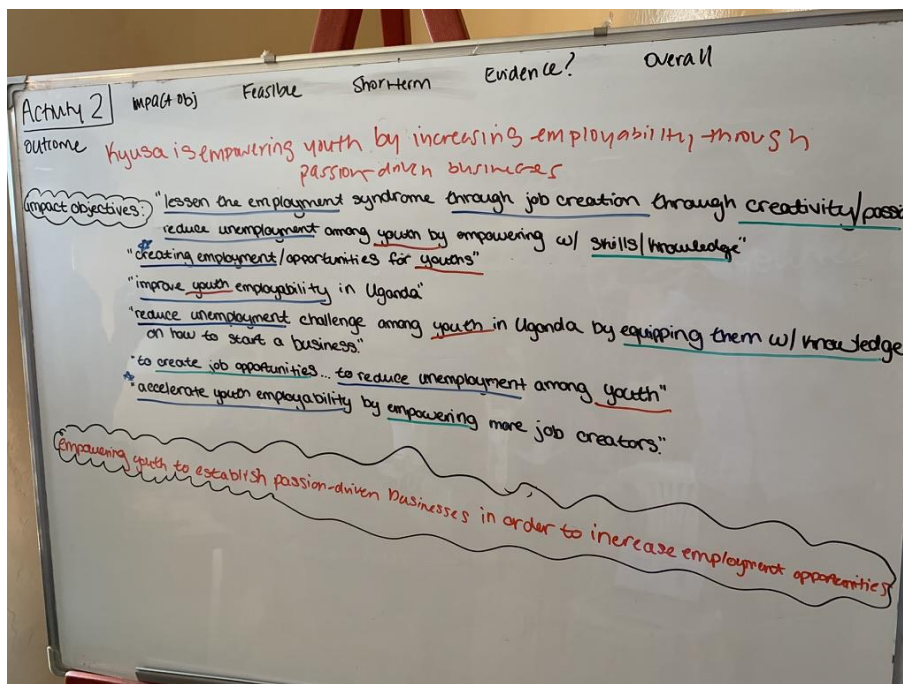 Activity 2 impact obj Feasible Short term Evidence? Overall
outcome Kyusa is empowering youth by increasing employability through
passion-driven businesses
impact objectives: "lessen the employment syndrome through job creation through creativity/passi
reduce unemployment among youth by empowering w/ skills/knowledge"
"creating employment/opportunities for youths"
"improve youth employability in Uganda"
"reduce unemployment challenge among youth in Uganda by equipping them w/ knowledge
on how to start a business."
"to create job opportunities... to reduce unemployment among youth"
"accelerate youth employability by empowering more job creators."
empowering youth to establish passion-driven businesses in order to increase employment opportunities